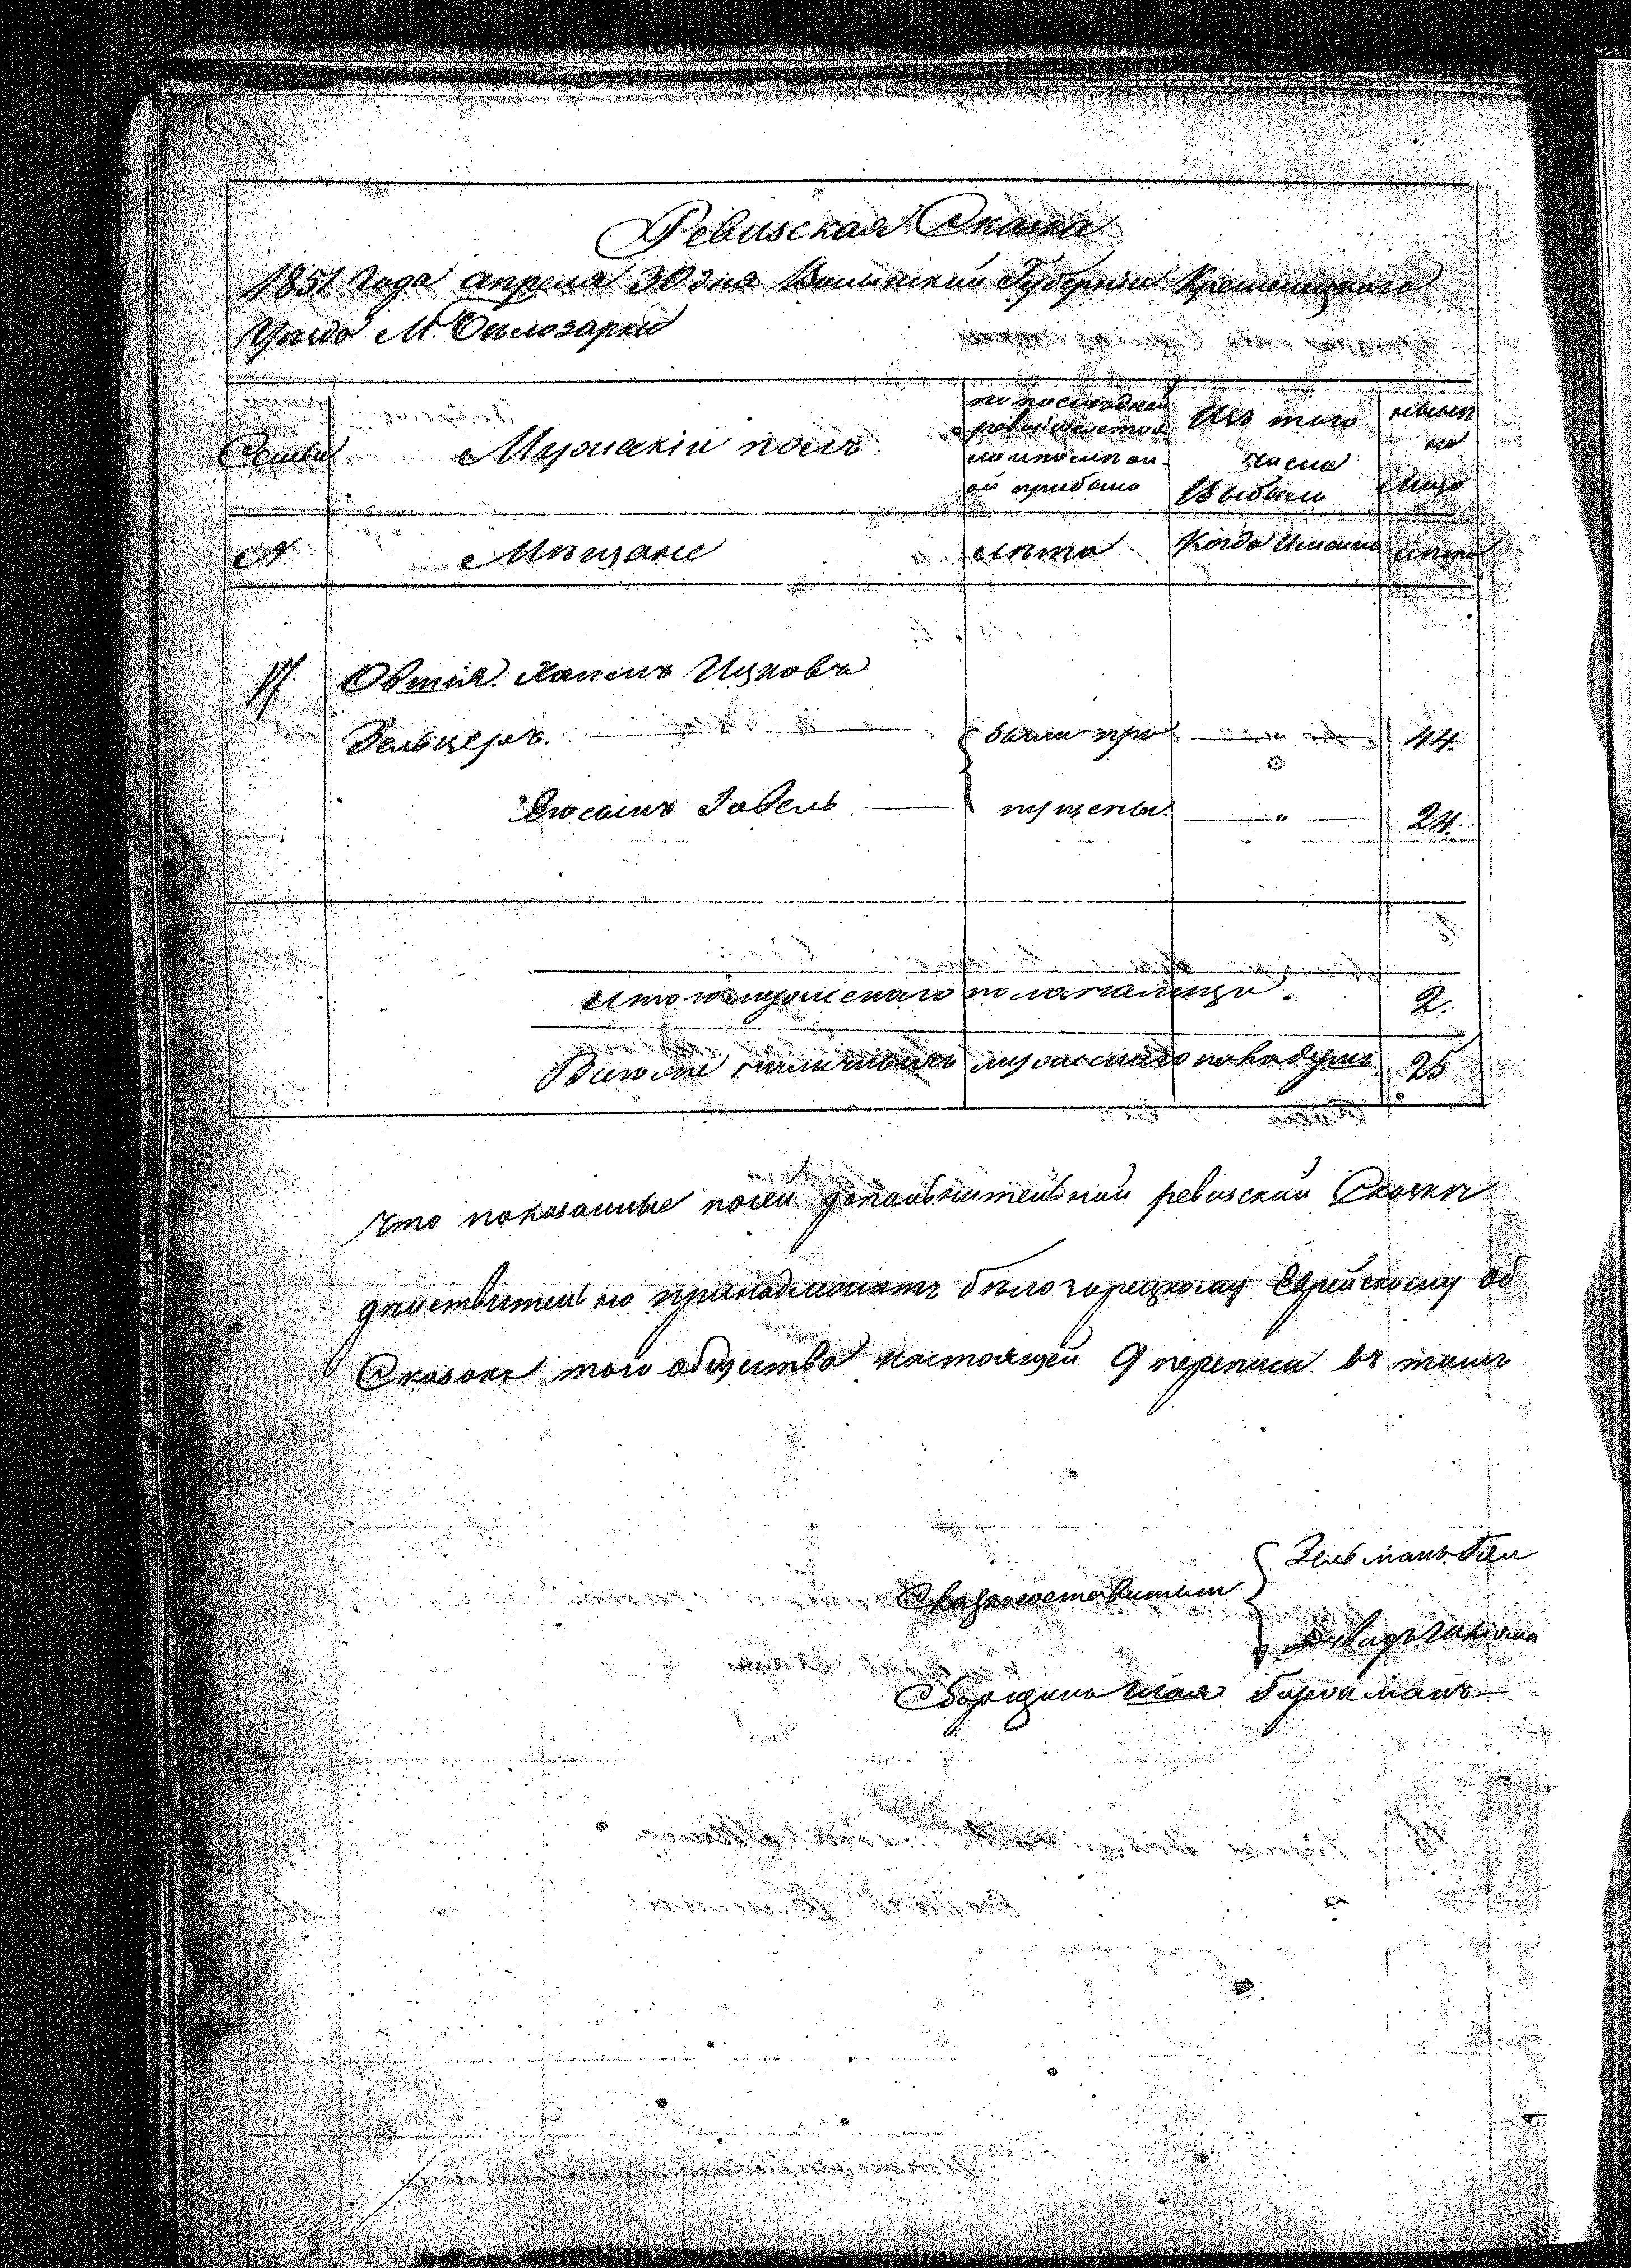 Ревизская Сказка
1851 Года Апреля 30 дня Волынской Губерніи Кременецкого
Уезда М. Белозарки
Семьи
Мужскій полъ
по последней
ревизіи состоя
ло и после он
ой прибыло
Изъ того
числа
Выбыло
ныне
на
лицо
№
Мещане
лета
Когда Именно
лета
17
Овшія Хаимъ Ицковъ
Зельцеръ.
были про
"
44.
Его сынъ Зовель
пущены.
"
24.
Итого мужескаго пола налицо.
2.
Всего же наличныхъ мужескаго пола душъ
25
что показанные посей дополнительной ревизской Сказке
действительно принадлежатъ белозорецкому Еврейскому об
Сказокъ того общества настоящей 9 переписи въ томъ
Сказкосоставители
Зельманъ
Давидъ
Сборщикъ Шая